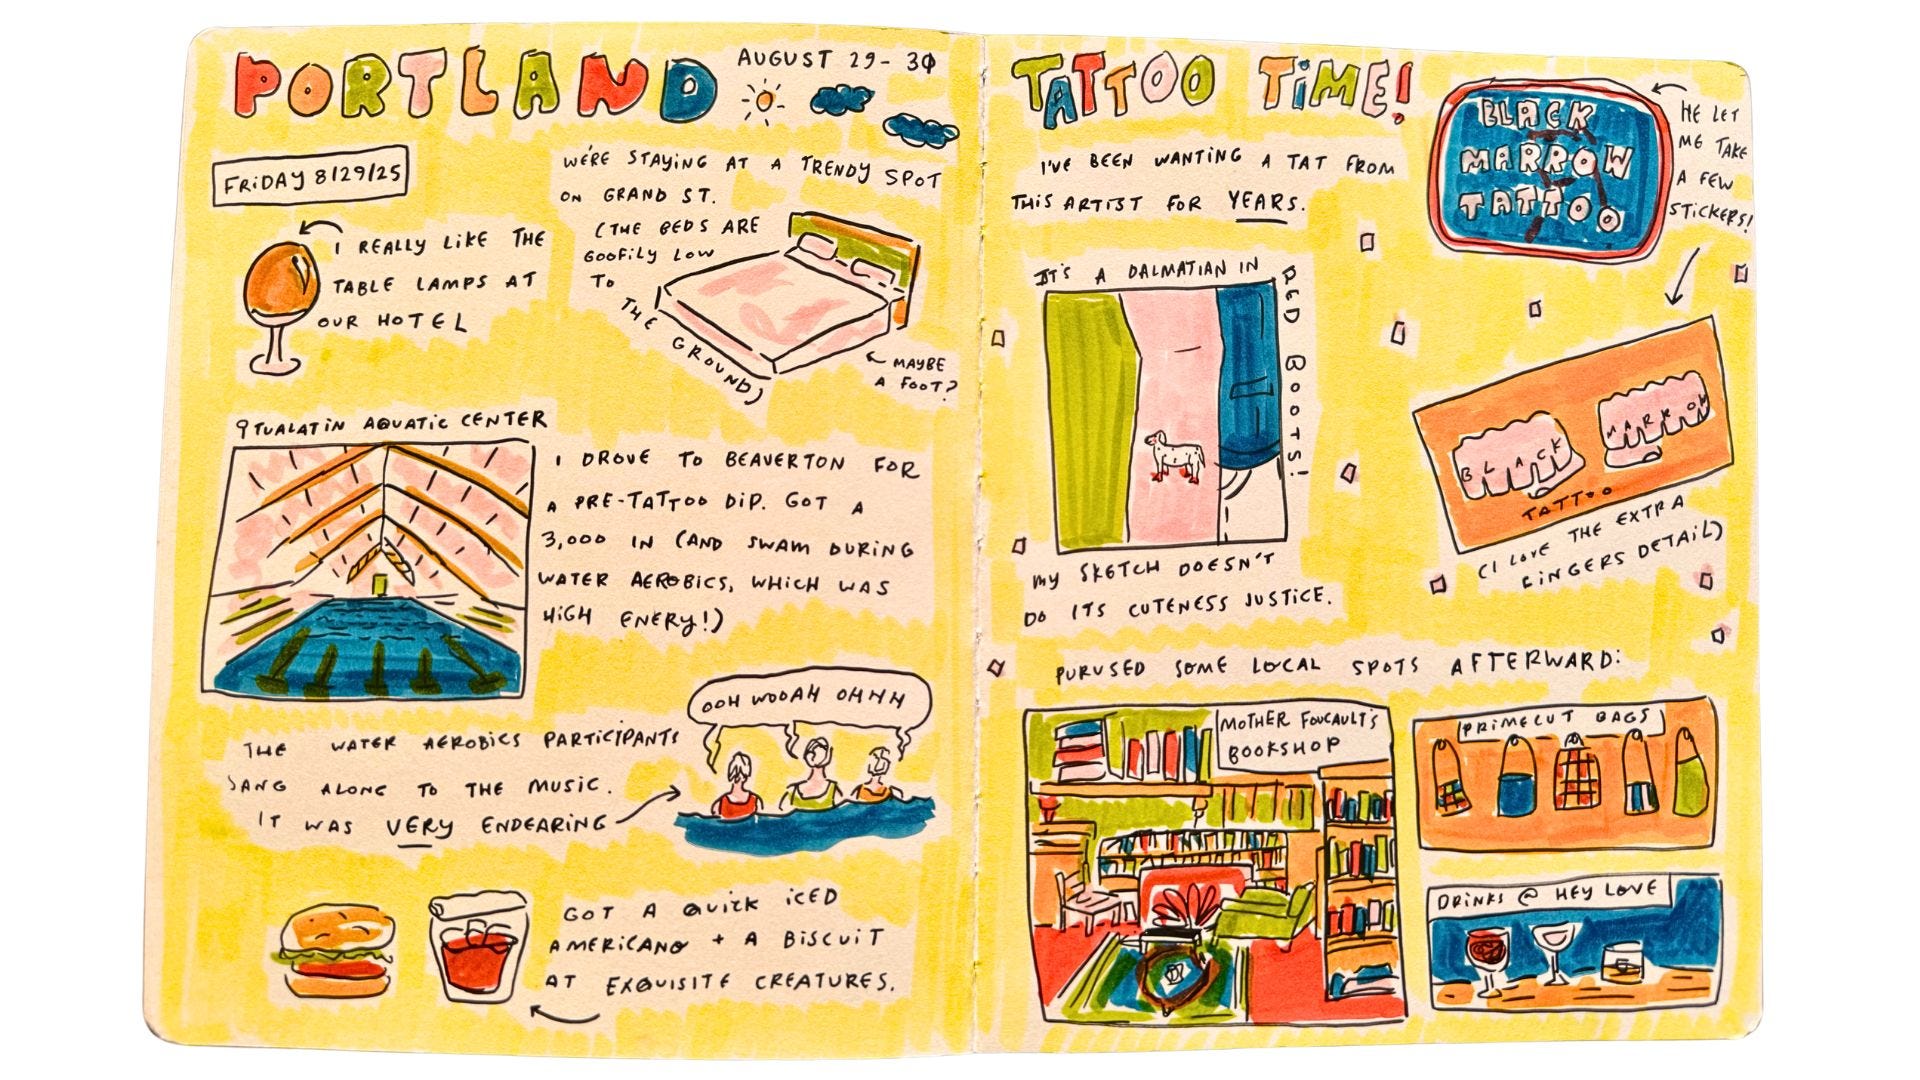 PORTLAND
AUGUST 29-30
FRIDAY 8/29/25
I REALLY LIKE THE
TABLE LAMPS AT
OUR HOTEL
WE'RE STAYING AT A TRENDY SPOT
ON GRAND ST.
(THE BEDS ARE
GOOFILY LOW
TO
THE
GROUND)
MAYBE
A FOOT?
TUALATIN AQUATIC CENTER
I DROVE TO BEAVERTON FOR
A PRE-TATTOO DIP. GOT A
3,000 IN (AND SWAM DURING
WATER AEROBICS, WHICH WAS
HIGH ENERY!)
OOH WOOAH OHHH
THE WATER AEROBICS PARTICIPANTS
SANG ALONG TO THE MUSIC.
IT WAS VERY ENDEARING
GOT A QUICK ICED
AMERICANO + A BISCUIT
AT EXQUISITE CREATURES.
TATTOO TIME!
I'VE BEEN WANTING A TAT FROM
THIS ARTIST FOR YEARS.
BLACK
MARROW
TATTOO
HE LET
ME TAKE
A FEW
STICKERS!
IT'S A DALMATIAN IN
RED BOOTS!
MY SKETCH DOESN'T
DO ITS CUTENESS JUSTICE.
BLACK
MARROW
TATTOO
(I LOVE THE EXTRA
FINGERS DETAIL)
PURUSED SOME LOCAL SPOTS AFTERWARD:
MOTHER FOUCAULT'S
BOOKSHOP
PRIMECUT BAGS
DRINKS @ HEY LOVE